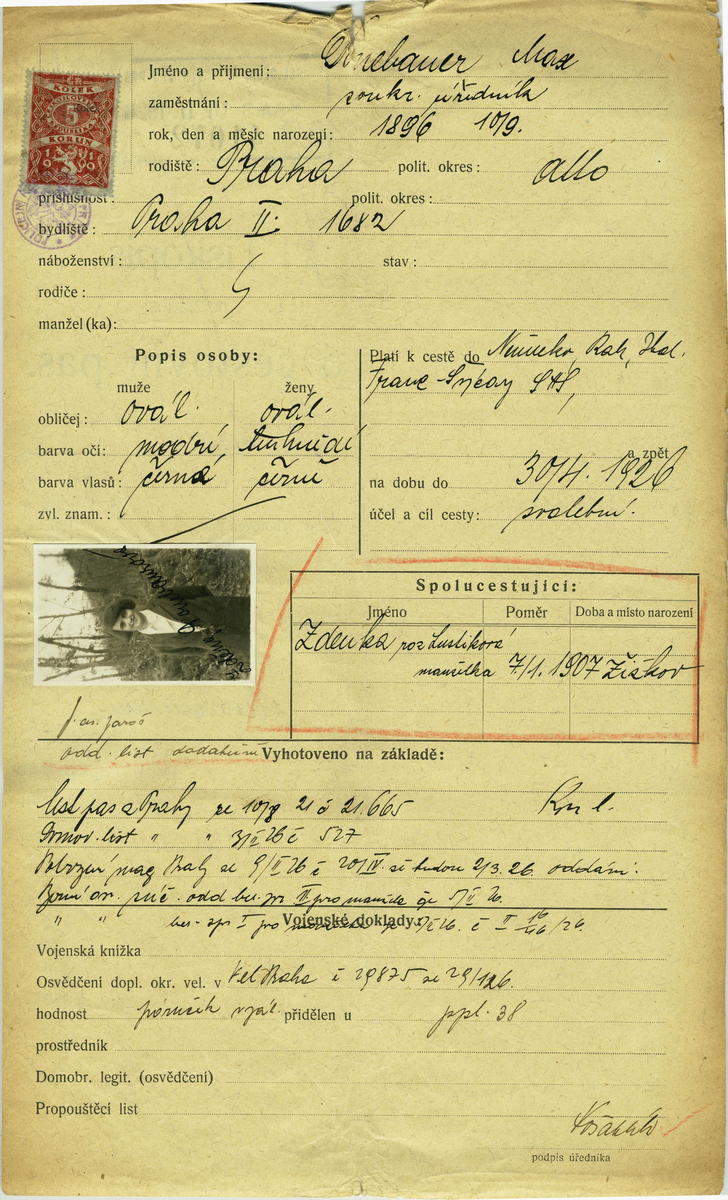 KOLEK
5
KORUN
1919
Jméno a příjmení: Dönebauer Max
zaměstnání: soukr. úředník
rok, den a měsíc narození: 1896 10/9.
rodiště: Praha polit. okres: dtto
příslušnost: polit. okres:
bydliště: Praha II. 1682
náboženství: stav:
rodiče:
manžel (ka):
Popis osoby:
muže ženy
obličej: ovál. ovál.
barva očí: modré, tm hnědé
barva vlasů: černé černé
zvl. znam.:
Platí k cestě do Německo, Rak, Ital.
Franc Švýcary SHS,
a zpět
na dobu do 30/4. 1926
účel a cíl cesty: svatební.
Spolucestující:
Jméno Poměr Doba a místo narození
Zdenka roz Lustiková
manželka 7/1. 1907 Žižkov
odd. list dodatečně
Vyhotoveno na základě:
pas z Prahy ze 21 č 21.665
Domov. list " " 3/II 26 č 527
Potvrzení mag Prahy ze 9/II 26 č 20/IV. že budou 2/3. 26. oddáni.
odd. pro manžela
" " pro
Vojenské doklady:
Vojenská knížka
Osvědčení dopl. okr. vel. v Vel Praha č 29875 ze 29/1 26.
hodnost poručík přidělen u ppl. 38
prostředník
Domobr. legit. (osvědčení)
Propouštěcí list
podpis úředníka